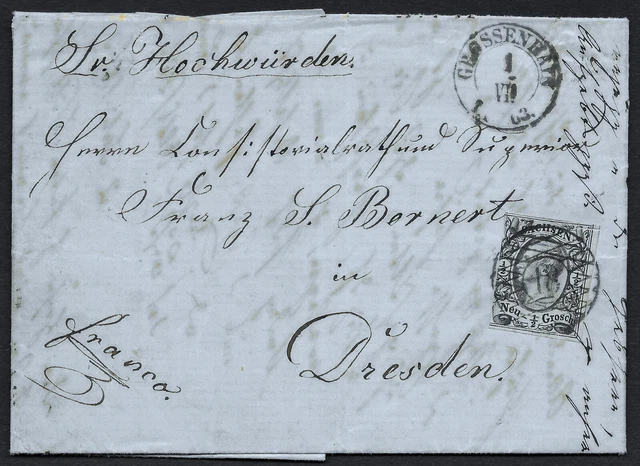 Sr. Hochwürden.
GROSSENHAIN
1
VII
63.
Herrn Consistorialrath und Superior
Franz S. Bornert
SACHSEN
Neu- 1/2 Grosch
in
Dresden.
franco.